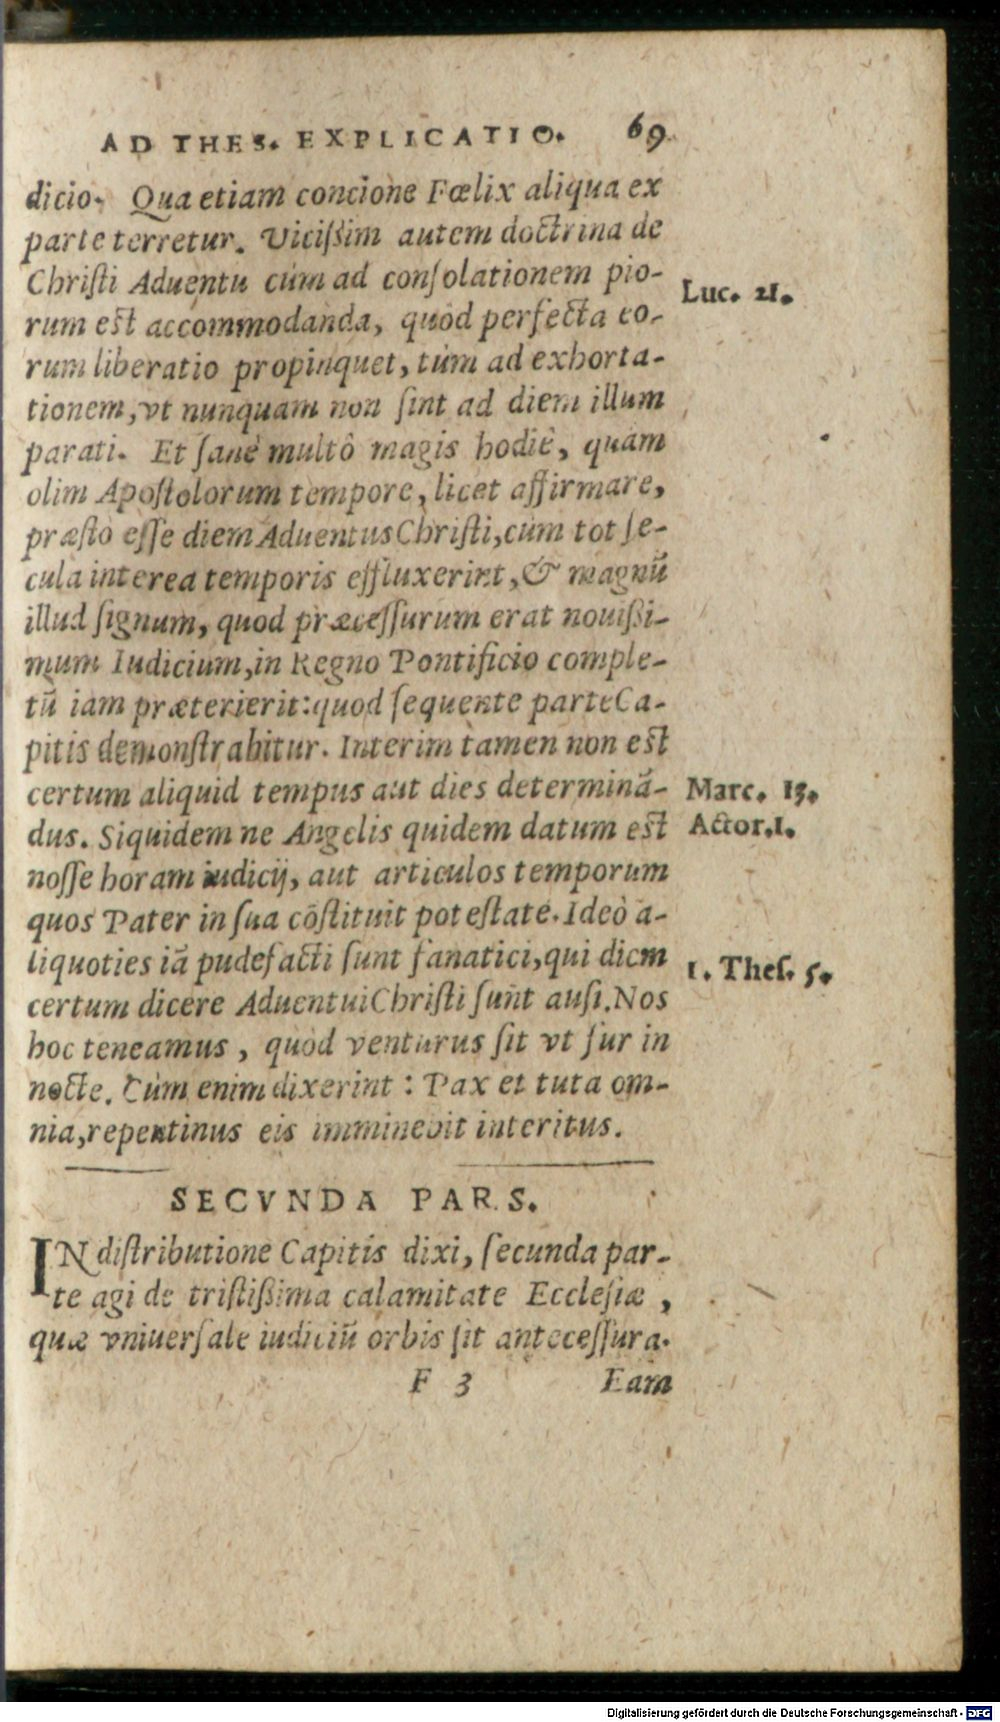 AD THES. EXPLICATIO. 69
dicio. Qua etiam concione Fœlix aliqua ex
parte terretur. Viciſſim autem doctrina de
Chriſti Aduentu cùm ad conſolationem pio-
Luc. 21.
rum est accommodanda, quòd perfecta eo-
rum liberatio propinquet, tùm ad exhorta-
tionem, vt nunquam non ſint ad diem illum
parati. Et ſanè multò magis hodiè, quàm
olim Apoſtolorum tempore, licet affirmare,
præſtò eſſe diem Aduentus Chriſti, cùm tot ſe-
cula interea temporis effluxerint, & magnũ
illud ſignum, quod præceſſurum erat nouiſſi-
mum Iudicium, in Regno Pontificio comple-
tũ iam præterierit: quod ſequente parte Ca-
pitis demonſtrabitur. Interim tamen non est
certum aliquid tempus aut dies determinã-
Marc. 13.
dus. Siquidem ne Angelis quidem datum est
Actor. 1.
noſſe horam iudicij, aut articulos temporum
quos Pater in ſua cõſtituit poteſtate. Ideò a-
liquoties iã pudefacti ſunt fanatici, qui diem
1. Theſ. 5.
certum dicere Aduentui Chriſti ſunt auſi. Nos
hoc teneamus, quòd venturus ſit vt fur in
nocte. Cùm enim dixerint: Pax et tuta om-
nia, repentinus eis imminebit interitus.
SECVNDA PARS.
IN diſtributione Capitis dixi, ſecunda par-
te agi de triſtiſſima calamitate Eccleſiæ,
quæ vniuerſale iudiciũ orbis ſit anteceſſura.
F 3 Eam
Digitalisierung gefördert durch die Deutsche Forschungsgemeinschaft - DFG